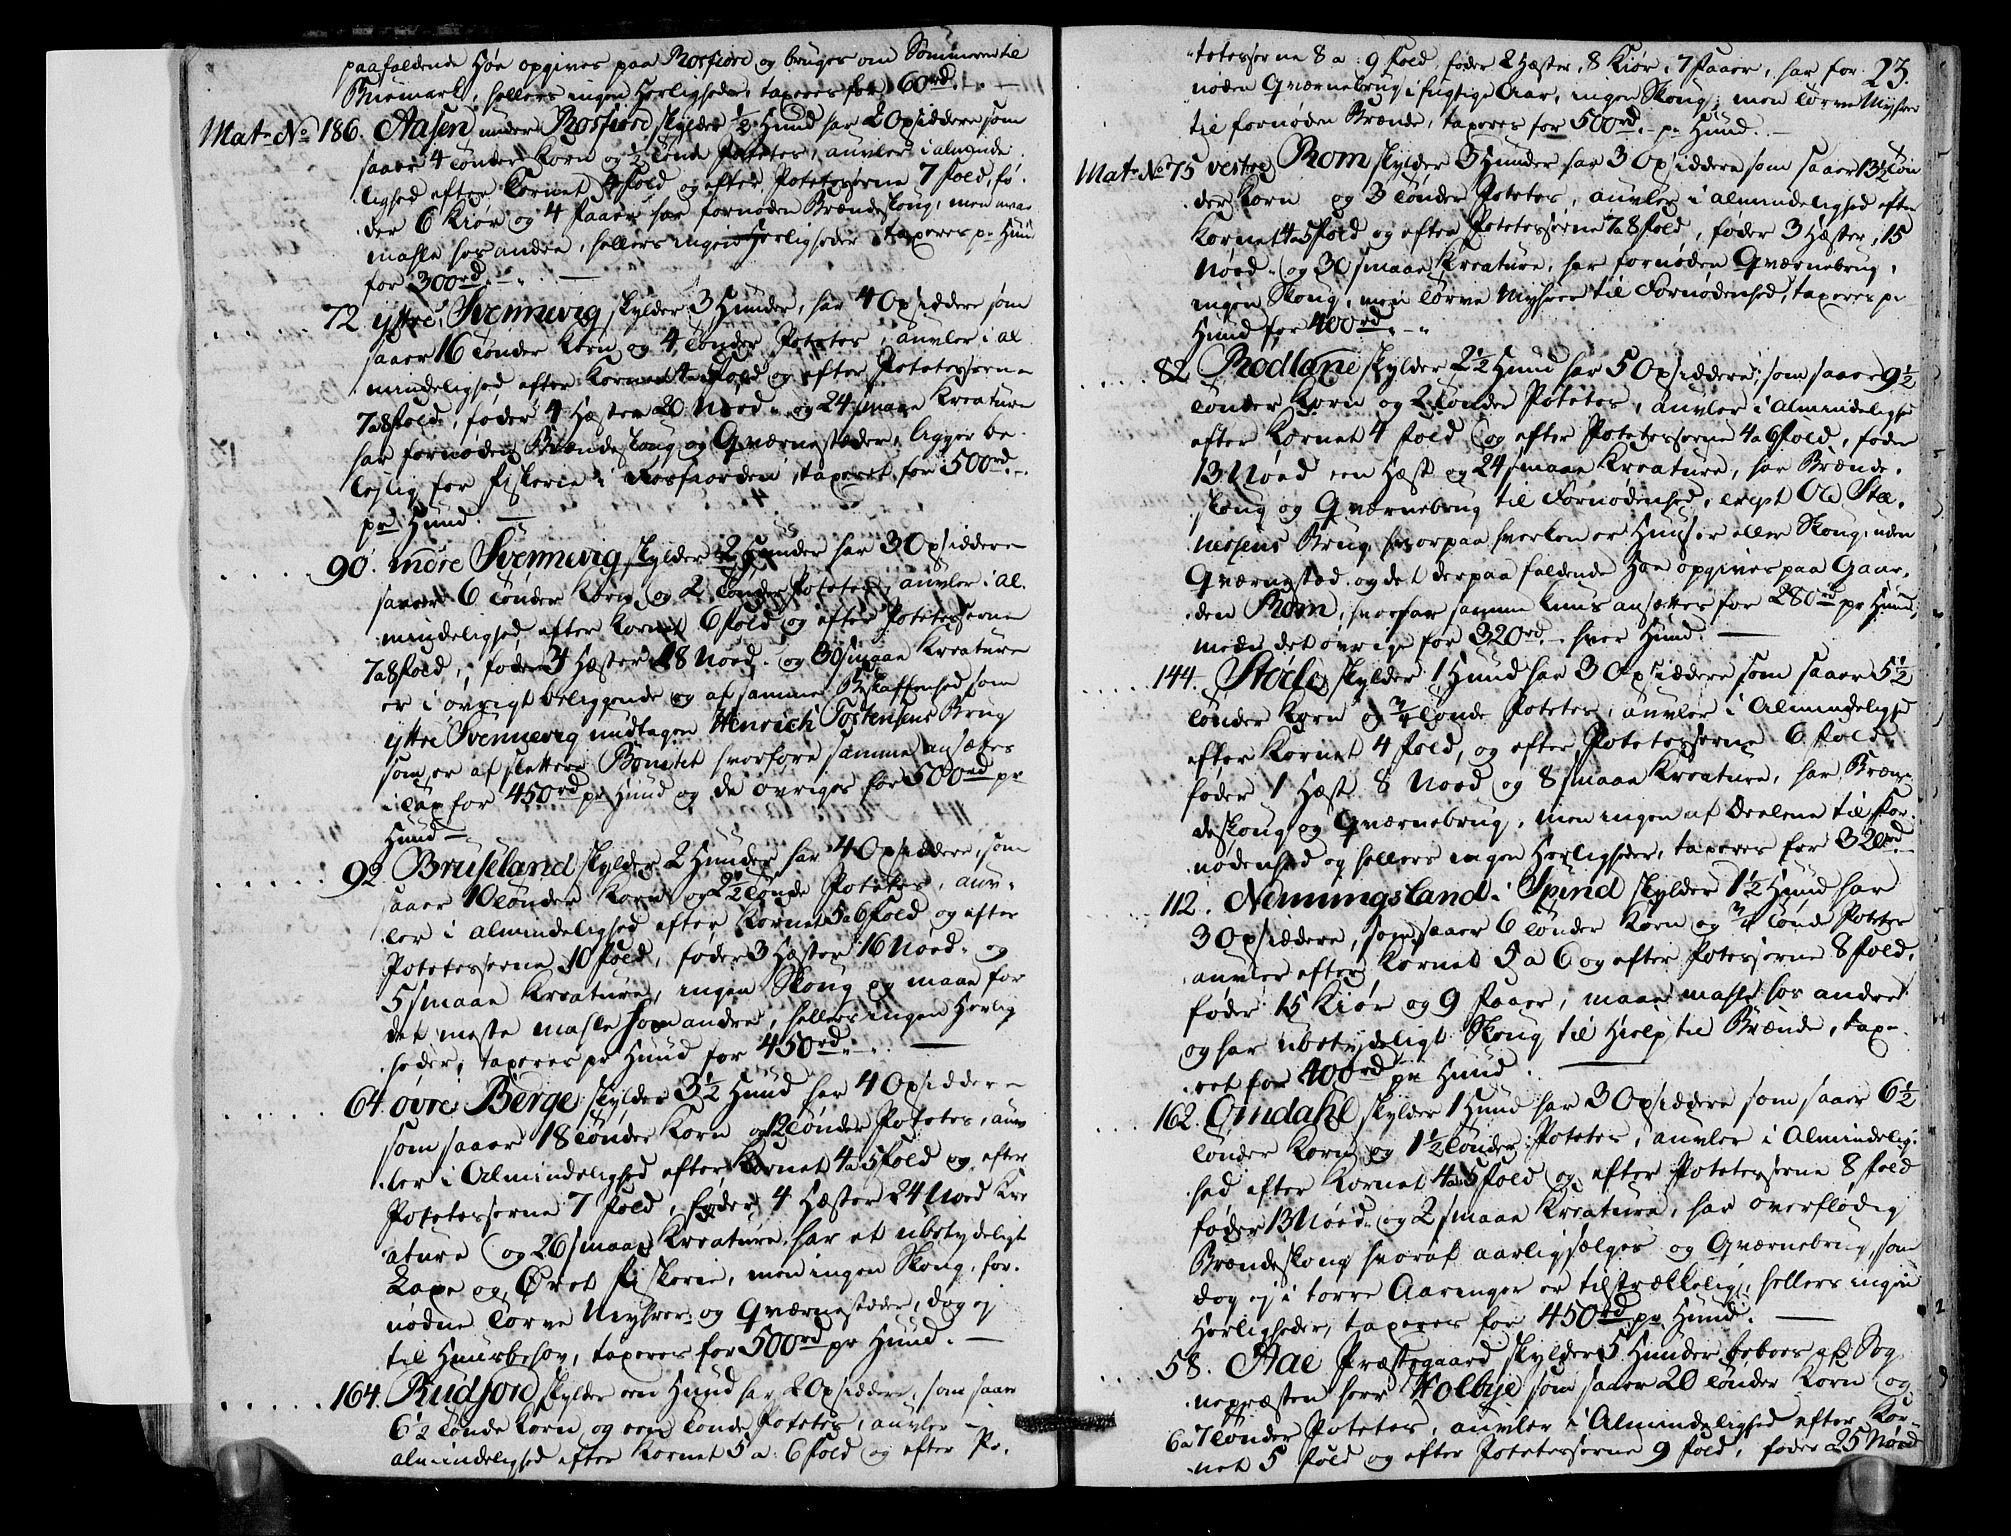 paafaldende Høe opgives paa Rosfiord og bruges om Sommeren til
Buemark, hellers ingen Herligheder, taxeres for 60rd.
Mat. No 186. Aasen under Rosfiord skylder 1/2 Hund har 2 Opsiddere som
saaer 4 Tønder Korn og 1/2 Tønde Potetes, auvler i alminde
lighed efter Kornet 4 fold og efter Potetesserne 7 fold, fø-
der 6 Kiør og 4 Faaer har fornøden Brændeskong, men maae
mahle hos andre, hellers ingen Herligheder taxeres pr Hund
for 300rd.
72 yttre Svennevig skylder 3 Hunder, har 4 Opsiddere som
saaer 16 Tønder Korn og 4 Tønder Potetes, auvler i al
mindelighed efter Kornet 4 a 5 fold og efter Potetesserne
7 a 8 fold, føder 4 Hæster 20 Nøed. og 24 smaae Kreature
har fornøden Brændeskong og Qværnestæder, ligger be-
leylig for Fiskerie i Rosfiorden, taxeret for 500rd.
pr Hund.
90. indre Svennevig skylder 2 Hunder har 3 Opsiddere
saaer 6 Tønder Korn og 2 Tønder Potetes, auvler i al-
mindelighed efter Kornet 6 fold og efter Potetesserne
7 a 8 fold, føder 3 Hæster 18 Nøed. og 30 smaae Kreature
er i øvrigt beliggende og af samme Beskaffenhed som
yttre Svennevig undtagen Henrich Tostensens Brug
som er af slettere Bonitet hvorfore samme ansættes
i Tax for 450rd pr Hund og de øvriges for 500rd pr
Hund
92 Bruseland skylder 2 Hunder har 4 Opsiddere, som
saaer 10 Tønder Korn og 2 1/2 Tønde Potetes, auv-
ler i almindelighed efter Kornet 5 a 6 fold og efter
Potetesserne 10 fold, føder 3 Hæster 16 Nøed. og
5 smaae Kreature, ingen Skong og maae for
det meste mahle hos andre, hellers ingen Herlig
heder, taxeres pr Hund for 450rd.
64 øvre Berge skylder 3 1/2 Hund har 4 Opsiddere
som saaer 18 Tønder Korn og 2 Tønder Potetes, auv
ler i Almindelighed efter Kornet 4 a 5 fold og efter
Potetesserne 7 fold, føder 4 Hæster 24 Nøed Kre
ature og 26 smaae Kreature, har et ubetydeligt
Laxe og Øret Fiskerie, men ingen Skong, for-
nødne Torve Myhrer og Qværnestæder, dog ej
til Huusbehov, taxeres for 500rd pr Hund.
164. Rudjord skylder een Hund har 2 Opsiddere, som saaer
6 1/2 Tønde Korn og een Tønde Potetes, auvler i
almindelighed efter Kornet 5 a 6 fold og efter Po-
23.
tetesserne 8 a 9 fold, føder 2 Hæster, 8 Kiør, 7 Faaer, har for-
nøden Qværnebrug i fugtige Aar, ingen Skong, men Torve Myhrer
til fornøden Brænde, taxeres for 500rd. pr Hund.
Mat. No 75 vestre Rom skylder 3 Hunder har 3 Opsiddere som saaer 13 1/2 Tøn
der Korn og 3 Tønder Potetes, auvler i almindelighed efter
Kornet 4 a 5 fold og efter Potetesserne 7 a 8 fold, føder 3 Hæster, 15
Nøed. og 30 smaae Kreature, har fornøden Qværnebrug,
ingen Skong, men Torve Myhrer til Fornødenhed, taxeres pr
Hund for 400rd.
82 Rødland skylder 2 1/2 Hund har 5 Opsiddere, som saaer 9 1/2
Tønder Korn og 2 Tønder Potetes, auvler i Almindelighed
efter Kornet 4 fold og efter Potetesserne 4 a 6 fold, føder
13 Nøed een Hæst og 24 smaae Kreature, har Brænde-
skong og Qværnebrug til Fornødenhed, exept Ole Stæ-
nessens Brug, hvorpaa hverken er Huuser eller Skong, uden
Qværnested og det derpaa faldende Høe opgives paa Gaar-
den Rom, hvorfor samme kuns ansættes for 280rd pr Hund,
mædn det øvrige for 320rd. hver Hund.
144. Støle skylder 1 Hund har 3 Opsiddere som saaer 5 1/2
Tønder Korn og 3/4 Tønde Potetes, auvler i Almindelighed
efter Kornet 4 fold, og efter Potetesserne 6 fold,
føder 1 Hæst 8 Nøed og 8 smaae Kreature, har Bræn-
deskong og Qværnebrug, men ingen af Deelene til For-
nødenhed og hellers ingen Herligheder, taxeres for 320rd.
112. Nenningsland i Spind skylder 1 1/2 Hund har
3 Opsiddere, som saaer 6 Tønder Korn og 3/4 Tønde Potetes
auvler efter Kornet 5 a 6 og efter Potesserne 8 fold,
føder 15 Kiør og 9 Faaer, maae mahle hos andre
og har ubetydeligt Skong til Hielp til Brænde, taxe-
ret for 400rd pr Hund.
162. Omdahl skylder 1 Hund har 3 Opsiddere som saaer 6 1/2
Tønder Korn og 1 1/2 Tønder Potetes, auvler i Almindelig-
hed efter Kornet 4 a 5 fold og efter Potetesserne 8 fold
føder 13 Nøed. og 2 smaae Kreature, har overflødig
Brændeskong hvoraf aarlig sælges og Qværnebrug, som
dog ej i tørre Aaringer er tilstrækkelig, hellers ingen
Herligheder, taxeres for 450rd. pr Hund.
58. Aae Præstegaard skylder 5 Hunder beboes af Sog
nepræsten herr Holbye som saaer 20 Tønder Korn og
6 a 7 Tønder Potetes, auvler i Almindelighed efter Kor-
net 5 fold og efter Potetesserne 9 fold, føder 25 Nøed